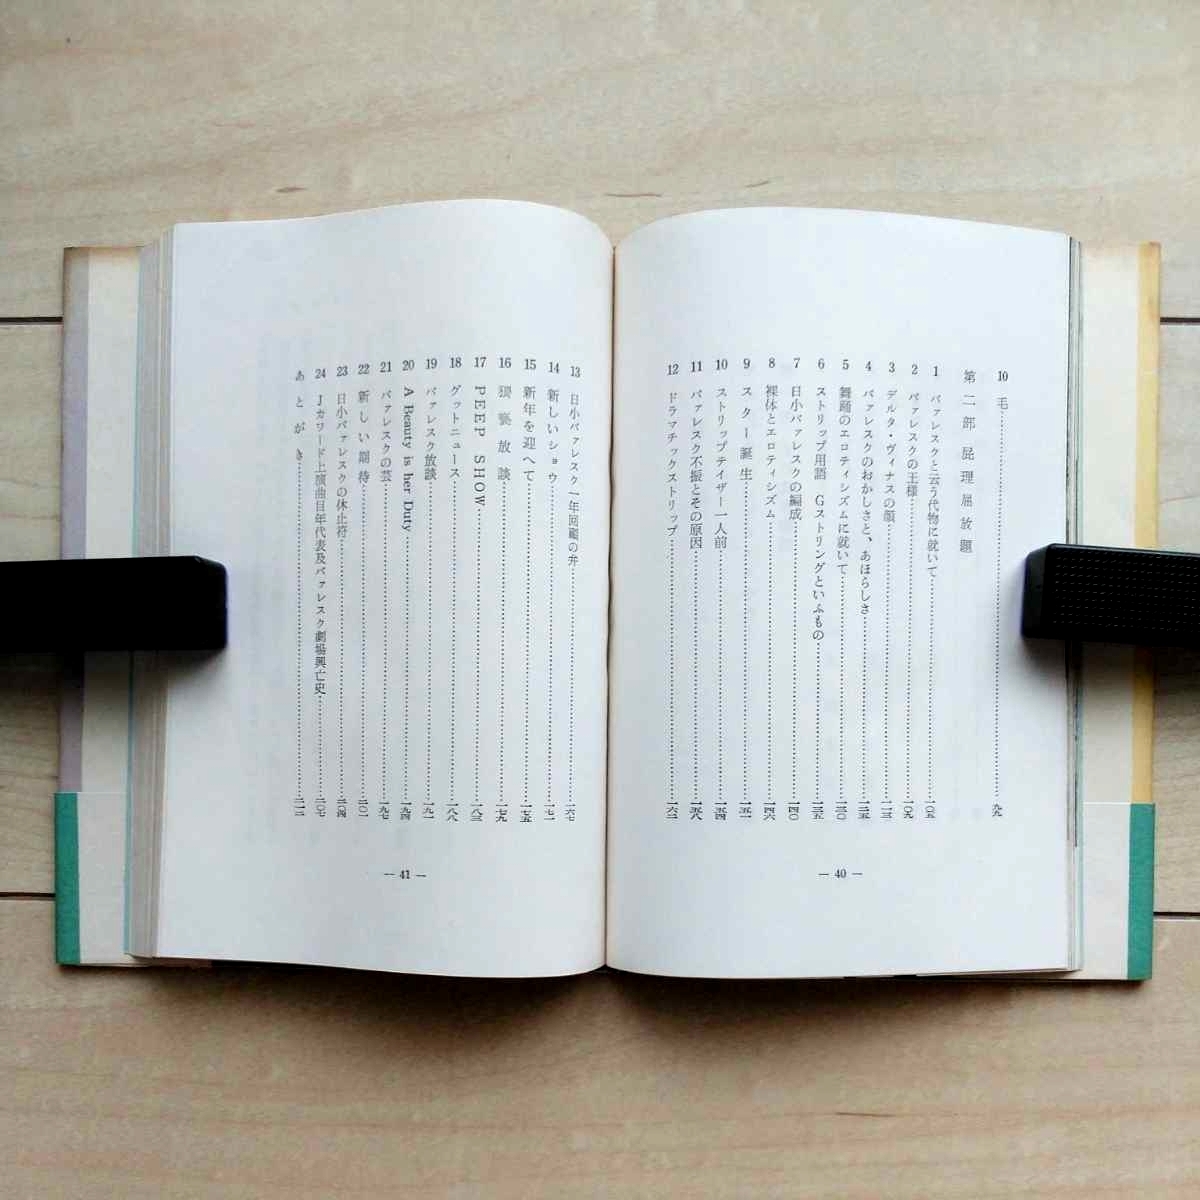 10 毛……九九
第二部 屁理屈放題
1 バァレスクと云う代物に就いて……一〇五
2 バァレスクの王様……一〇九
3 デルタ・ヴィナスの顔……一一三
4 バァレスクのおかしさと、あほらしさ……一二五
5 舞踊のエロティシズムに就いて……一三〇
6 ストリップ用語 Gストリングといふもの……一三五
7 日小バァレスクの編成……一四〇
8 裸体とエロティシズム……一四六
9 スター誕生……一五一
10 ストリップテイザー一人前……一五四
11 バァレスク不振とその原因……一五八
12 ドラマチックストリップ……一六二
— 40 —
13 日小バァレスク一年回顧の弁……一六七
14 新しいショウ……一七一
15 新年を迎へて……一七五
16 猥褻放談……一七九
17 PEEP SHOW……一八三
18 グットニュース……一八八
19 バァレスク放談……一九一
20 A Beauty is her Duty……一九四
21 バァレスクの芸……一九七
22 新しい期待……二〇一
23 日小バァレスクの休止符……二〇四
24 Jカワード上演曲目年代表及バァレスク劇場興亡史……二〇七
あとがき……二一二
— 41 —